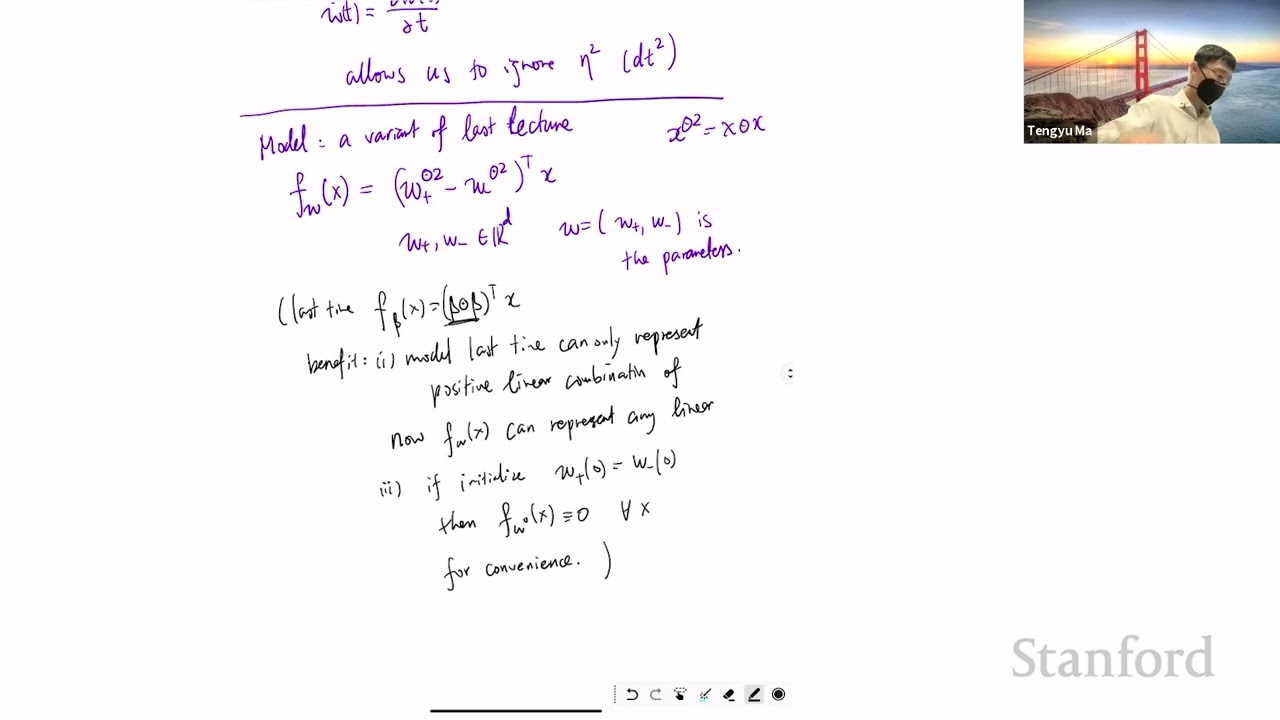 ẇ(t) = ∂w(t)/∂t
allows us to ignore η² (dt²)
Model: a variant of last lecture x^⊙2 = x⊙x
f_w(x) = (w₊^⊙2 - w₋^⊙2)ᵀ x
w₊, w₋ ∈ ℝᵈ w = (w₊, w₋) is
the parameters.
(last time f_β(x) = (β⊙β)ᵀ x
benefit: (i) model last time can only represent
positive linear combination of
now f_w(x) can represent any linear
ii) if initialize w₊(0) = w₋(0)
then f_w⁰(x) ≡ 0 ∀ x
for convenience. )
Tengyu Ma
Stanford